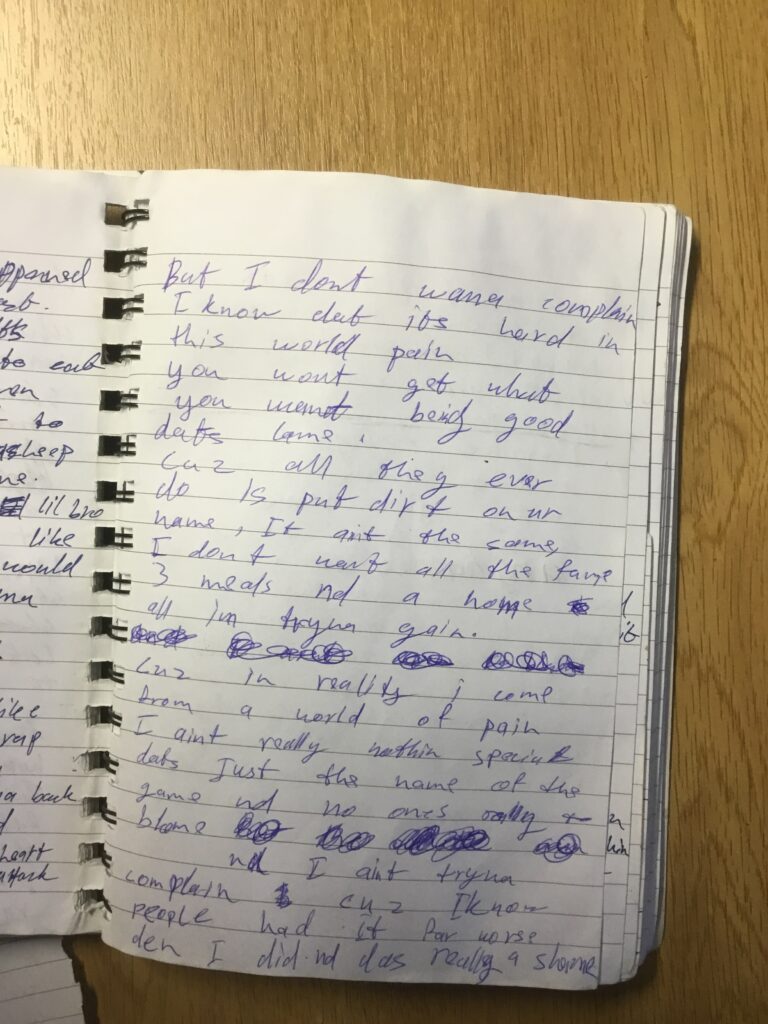 ppened
to eat
to
sleep
me.
lil bro
like
would
like
rap
back
heart
attack
But I dont wana complain
I know dat its hard in
this world pain
you wont get what
you want being good
dats lame.
Cuz all they ever
do is put dirt on ur
name, It aint the same,
I dont want all the fame
3 meals nd a home
all im tryna gain.
Cuz in reality i come
from a world of pain
I aint really nothin special
dats Just the name of the
game nd no ones really
blame
nd I aint tryna
complain cuz I know
people had it far worse
den I did nd das really a shame